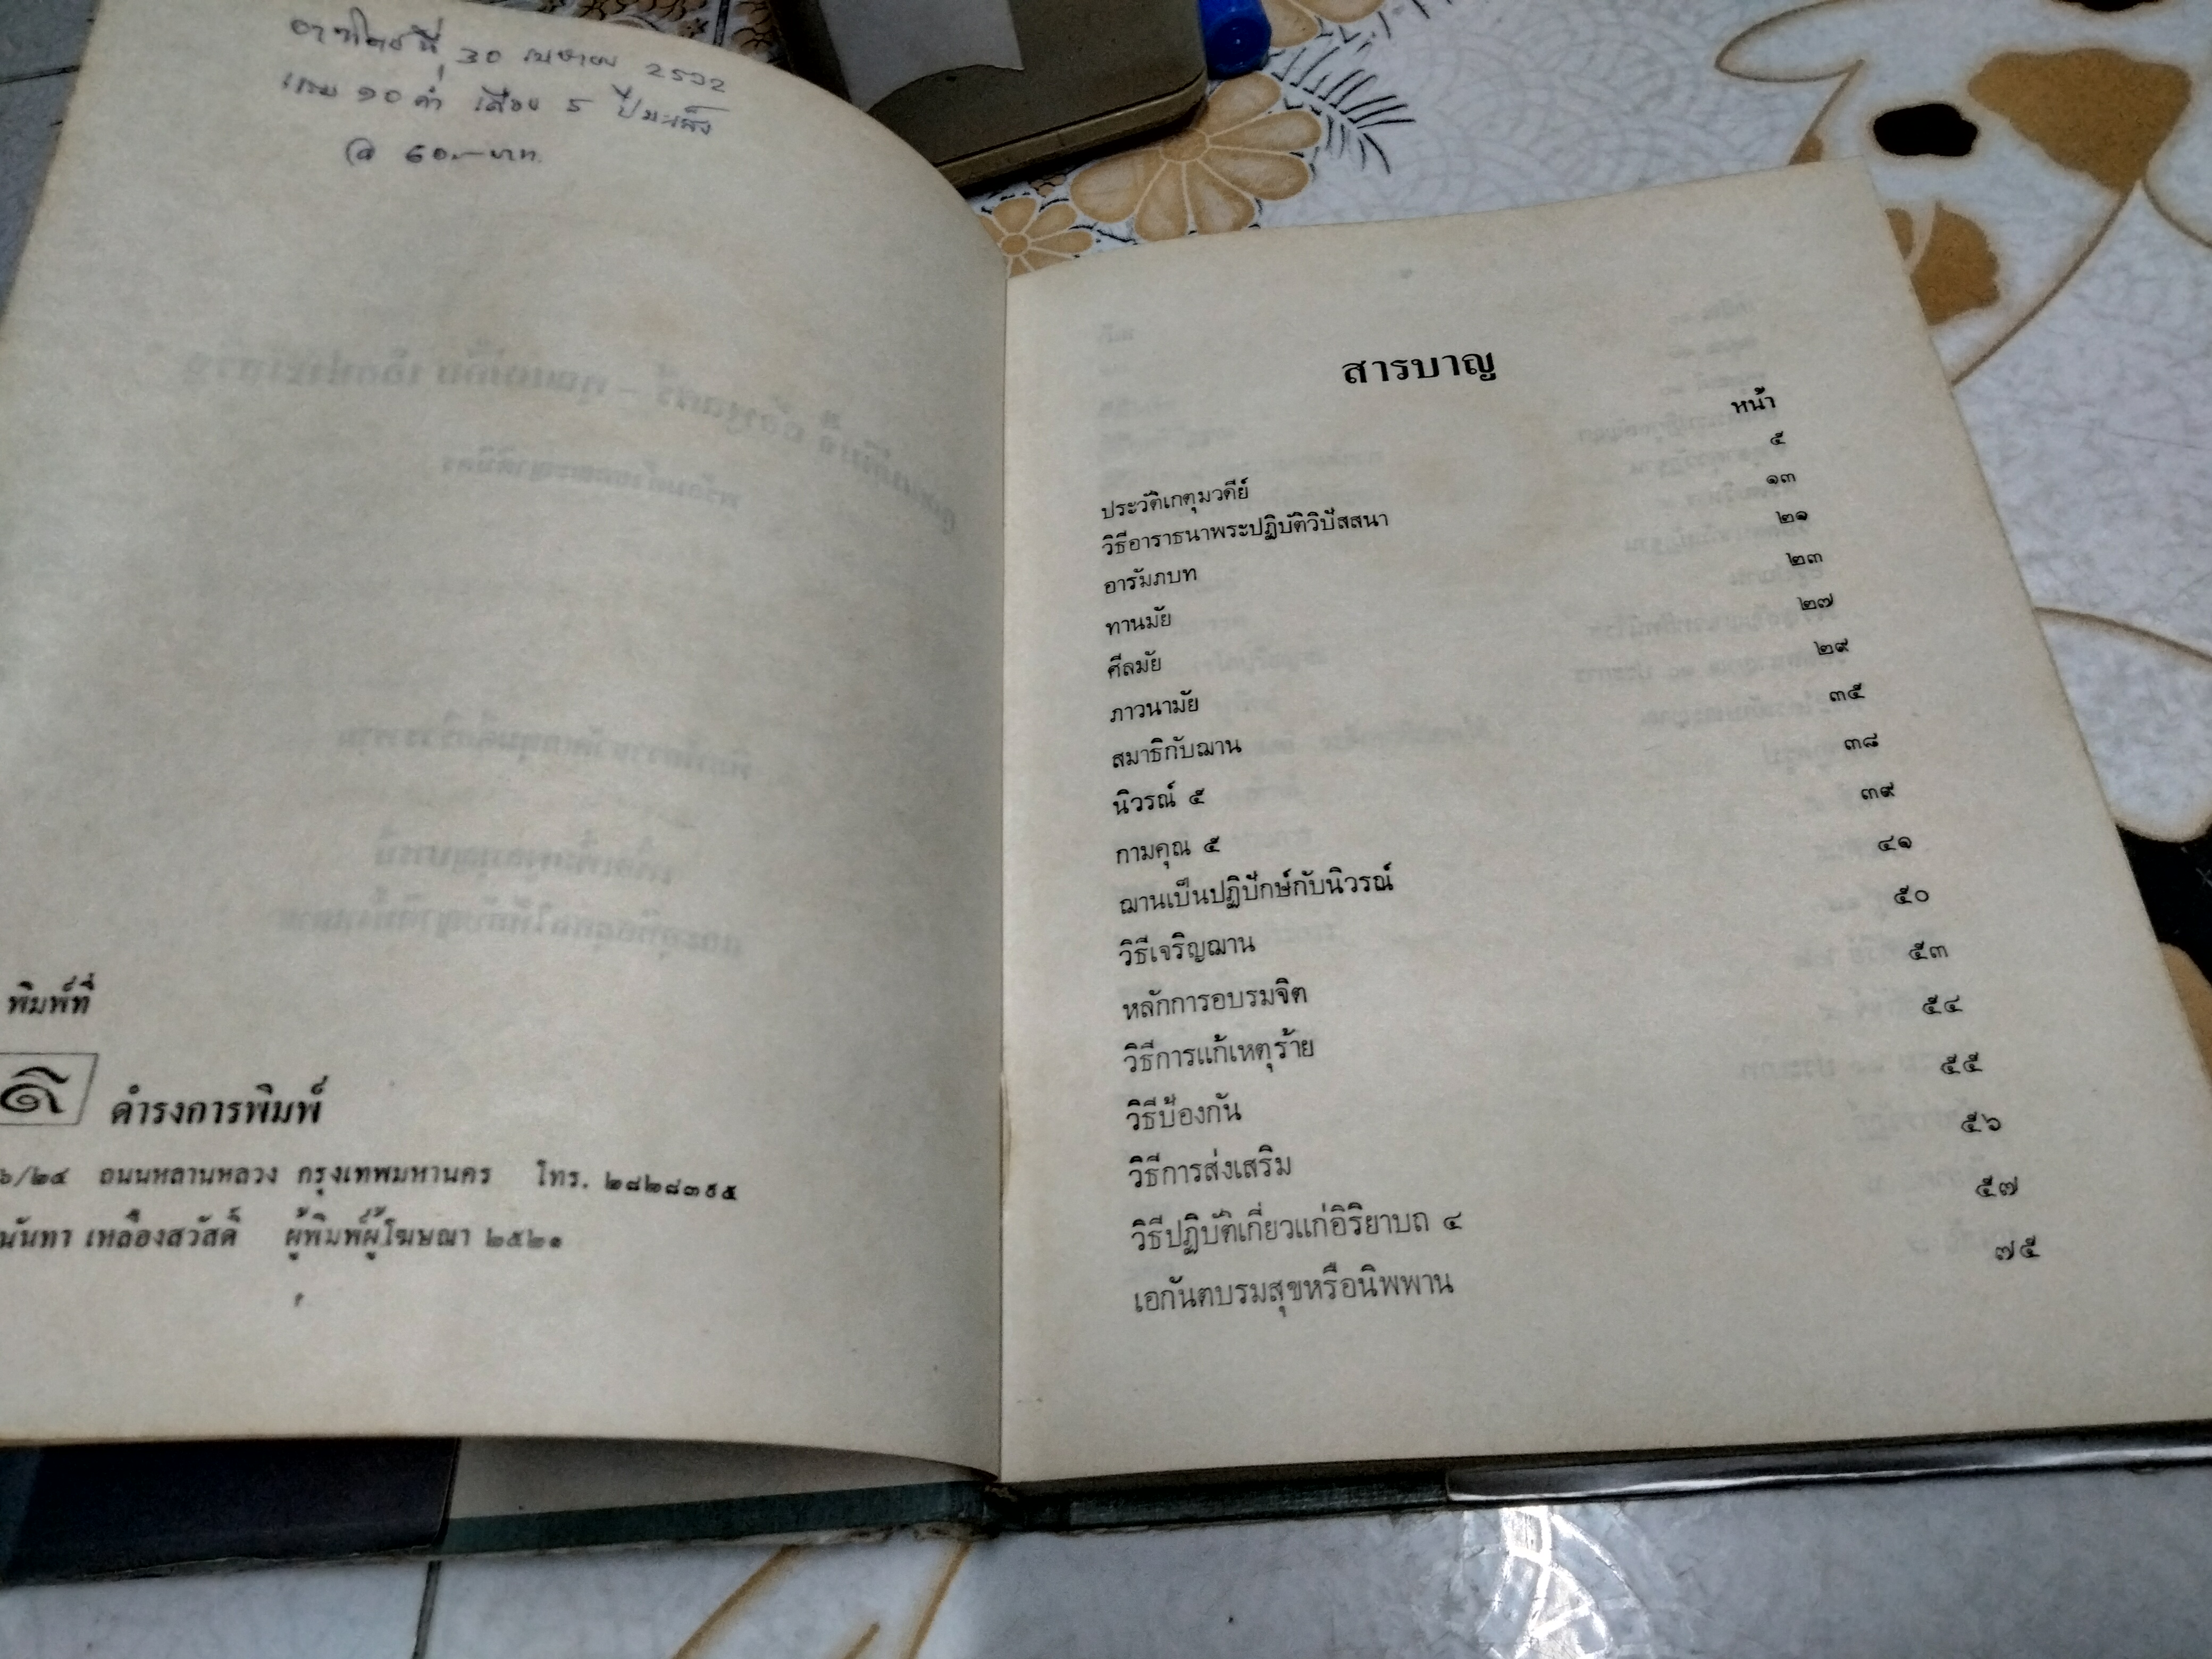 อาทิตย์ที่ 30 เมษายน 2532
แรม ๑๐ ค่ำ เดือน 5 ปีมะเส็ง
@ 60.— บาท.
พิมพ์ที่
ดำรงการพิมพ์
๖/๒๔ ถนนหลานหลวง กรุงเทพมหานคร โทร. ๒๘๒๘๓๕๕
นันทา เหลืองสวัสดิ์ ผู้พิมพ์ผู้โฆษณา ๒๕๒๑
สารบาญ
หน้า
ประวัติเกตุมวดีย์ ๕
วิธีอาราธนาพระปฏิบัติวิปัสสนา ๑๓
อารัมภบท ๒๑
ทานมัย ๒๓
ศีลมัย ๒๗
ภาวนามัย ๒๙
สมาธิกับฌาน ๓๕
นิวรณ์ ๕ ๓๘
กามคุณ ๕ ๓๙
ฌานเป็นปฏิปักษ์กับนิวรณ์ ๔๑
วิธีเจริญฌาน ๕๐
หลักการอบรมจิต ๕๓
วิธีการแก้เหตุร้าย ๕๔
วิธีป้องกัน ๕๕
วิธีการส่งเสริม ๕๖
วิธีปฏิบัติเกี่ยวแก่อิริยาบถ ๔ ๕๗
เอกันตบรมสุขหรือนิพพาน ๗๕